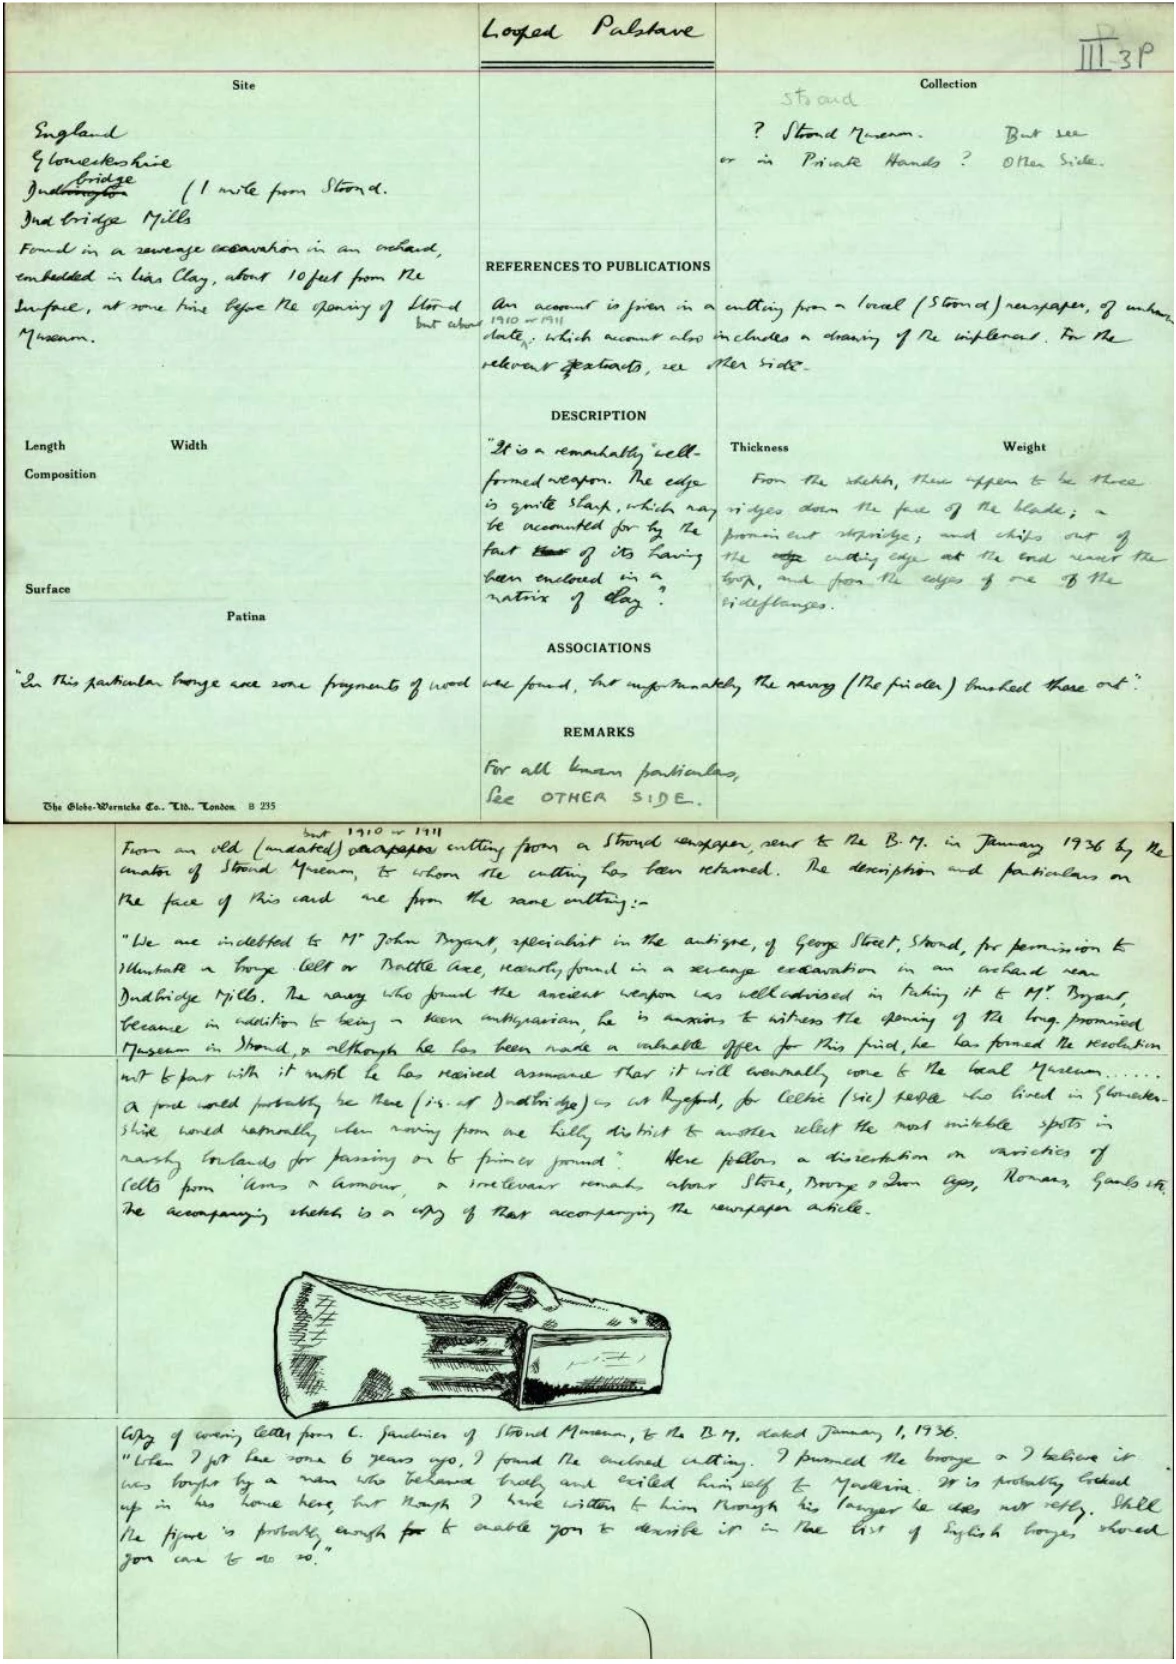 Looped Palstave
III 3P
Site
Collection
Stroud
England
Gloucestershire
bridge
Dudbridge (1 mile from Stroud.
Dudbridge Mills
Found in a sewerage excavation in an orchard,
embedded in Lias Clay, about 10 feet from the
surface, at some time before the opening of Stroud
Museum.
? Stroud Museum. But see
or in Private Hands ? Other Side.
REFERENCES TO PUBLICATIONS
An account is given in a cutting from a local (Stroud) newspaper, of unknown
but about 1910 or 1911
date; which account also includes a drawing of the implement. For the
relevant extracts, see other side.
DESCRIPTION
Length Width
Thickness Weight
Composition
Surface
Patina
"It is a remarkably well-
formed weapon. The edge
is quite sharp, which may
be accounted for by the
fact of its having
been enclosed in a
matrix of clay".
From the sketch, there appear to be three
ridges down the face of the blade; a
prominent stopridge; and chips out of
the cutting edge at the end nearer the
loop, and from the edges of one of the
sideflanges.
ASSOCIATIONS
"In this particular bronze axe some fragments of wood were found, but unfortunately the navvy (the finder) brushed these out".
REMARKS
For all known particulars,
See OTHER SIDE.
The Globe-Wernicke Co., Ltd., London. B 235
but 1910 or 1911
From an old (undated) cutting from a Stroud newspaper, sent to the B.M. in January 1936 by the
curator of Stroud Museum, to whom the cutting has been returned. The description and particulars on
the face of this card are from the same cutting:-
"We are indebted to Mr John Bryant, specialist in the antique, of George Street, Stroud, for permission to
illustrate a bronze Celt or Battle Axe, recently found in a sewerage excavation in an orchard near
Dudbridge Mills. The navvy who found the ancient weapon was well advised in taking it to Mr. Bryant,
because in addition to being a keen antiquarian, he is anxious to witness the opening of the long-promised
Museum in Stroud, & although he has been made a valuable offer for this find, he has formed the resolution
not to part with it until he has received assurance that it will eventually come to the local Museum......
A ford would probably be there (i.e. at Dudbridge) as at Ryeford, for Celtic (sic) people who lived in Gloucester-
shire would naturally when moving from one hilly district to another select the most suitable spots in
marshy lowlands for passing on to firmer ground". Here follows a dissertation on varieties of
Celts from 'Arms & Armour', & irrelevant remarks about Stone, Bronze & Iron Ages, Romans, Gauls etc.
The accompanying sketch is a copy of that accompanying the newspaper article.
Copy of covering letter from C. Gardiner of Stroud Museum, to the B.M, dated January 1, 1936.
"When I got here some 6 years ago, I found the enclosed cutting. I pursued the bronze & I believe it
was bought by a man who behaved badly and exiled himself to Madeira. It is probably locked
up in his house here, but though I have written to him through his lawyer he does not reply. Still
the figure is probably enough to enable you to describe it in the list of English bronzes should
you care to do so."